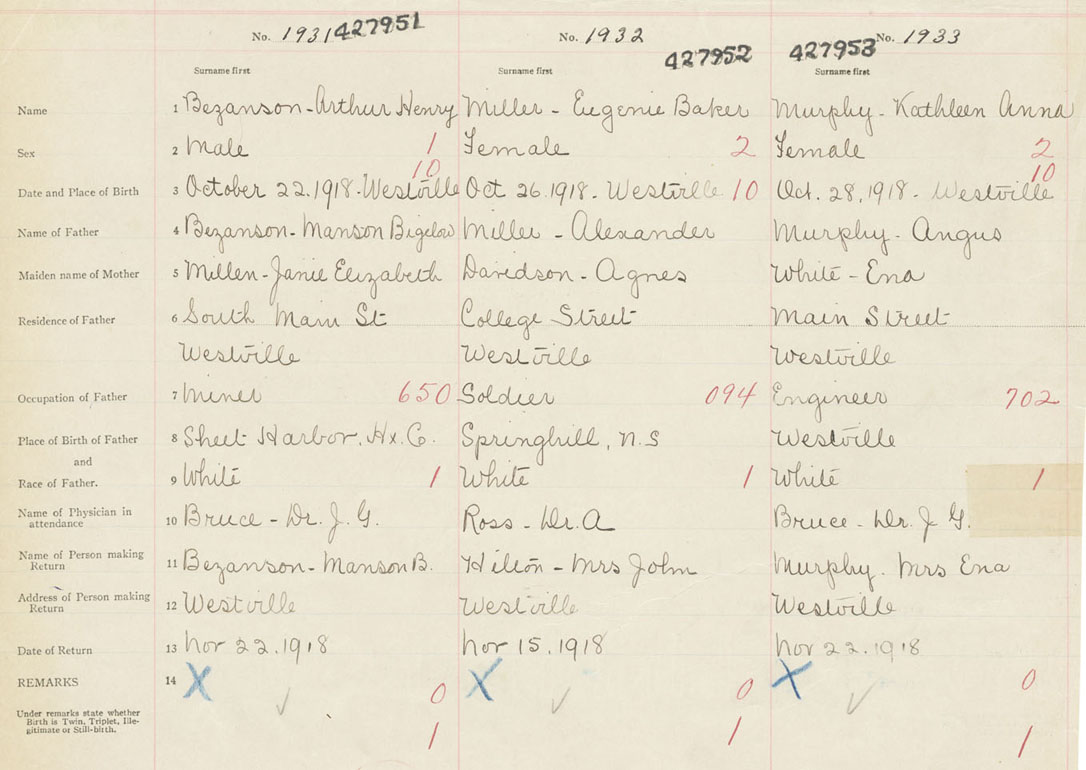 No. 1931 427951 No. 1932 427952 427953 No. 1933
Surname first Surname first Surname first
Name 1 Bezanson - Arthur Henry Miller - Eugenie Baker Murphy - Kathleen Anna
Sex 2 Male 1 Female 2 Female 2
10 10
Date and Place of Birth 3 October 22. 1918 - Westville Oct 26. 1918 - Westville 10 Oct. 28, 1918 - Westville
Name of Father 4 Bezanson - Manson Bigelow Miller - Alexander Murphy - Angus
Maiden name of Mother 5 Millen - Janie Elizabeth Davidson - Agnes White - Ena
Residence of Father 6 South Main St College Street Main Street
Westville Westville Westville
Occupation of Father 7 Miner 650 Soldier 094 Engineer 702
Place of Birth of Father 8 Sheet Harbor, Hx. Co. Springhill, N.S Westville
and
Race of Father. 9 White 1 White 1 White 1
Name of Physician in
attendance 10 Bruce - Dr. J. G. Ross - Dr. A Bruce - Dr. J G.
Name of Person making
Return 11 Bezanson - Manson B. Hilton - Mrs John Murphy. Mrs Ena
Address of Person making
Return 12 Westville Westville Westville
Date of Return 13 Nov 22. 1918 Nov 15. 1918 Nov 22. 1918
REMARKS 14 X X X
0 0 0
Under remarks state whether
Birth is Twin, Triplet, Ille-
gitimate or Still-birth.
1 1 1